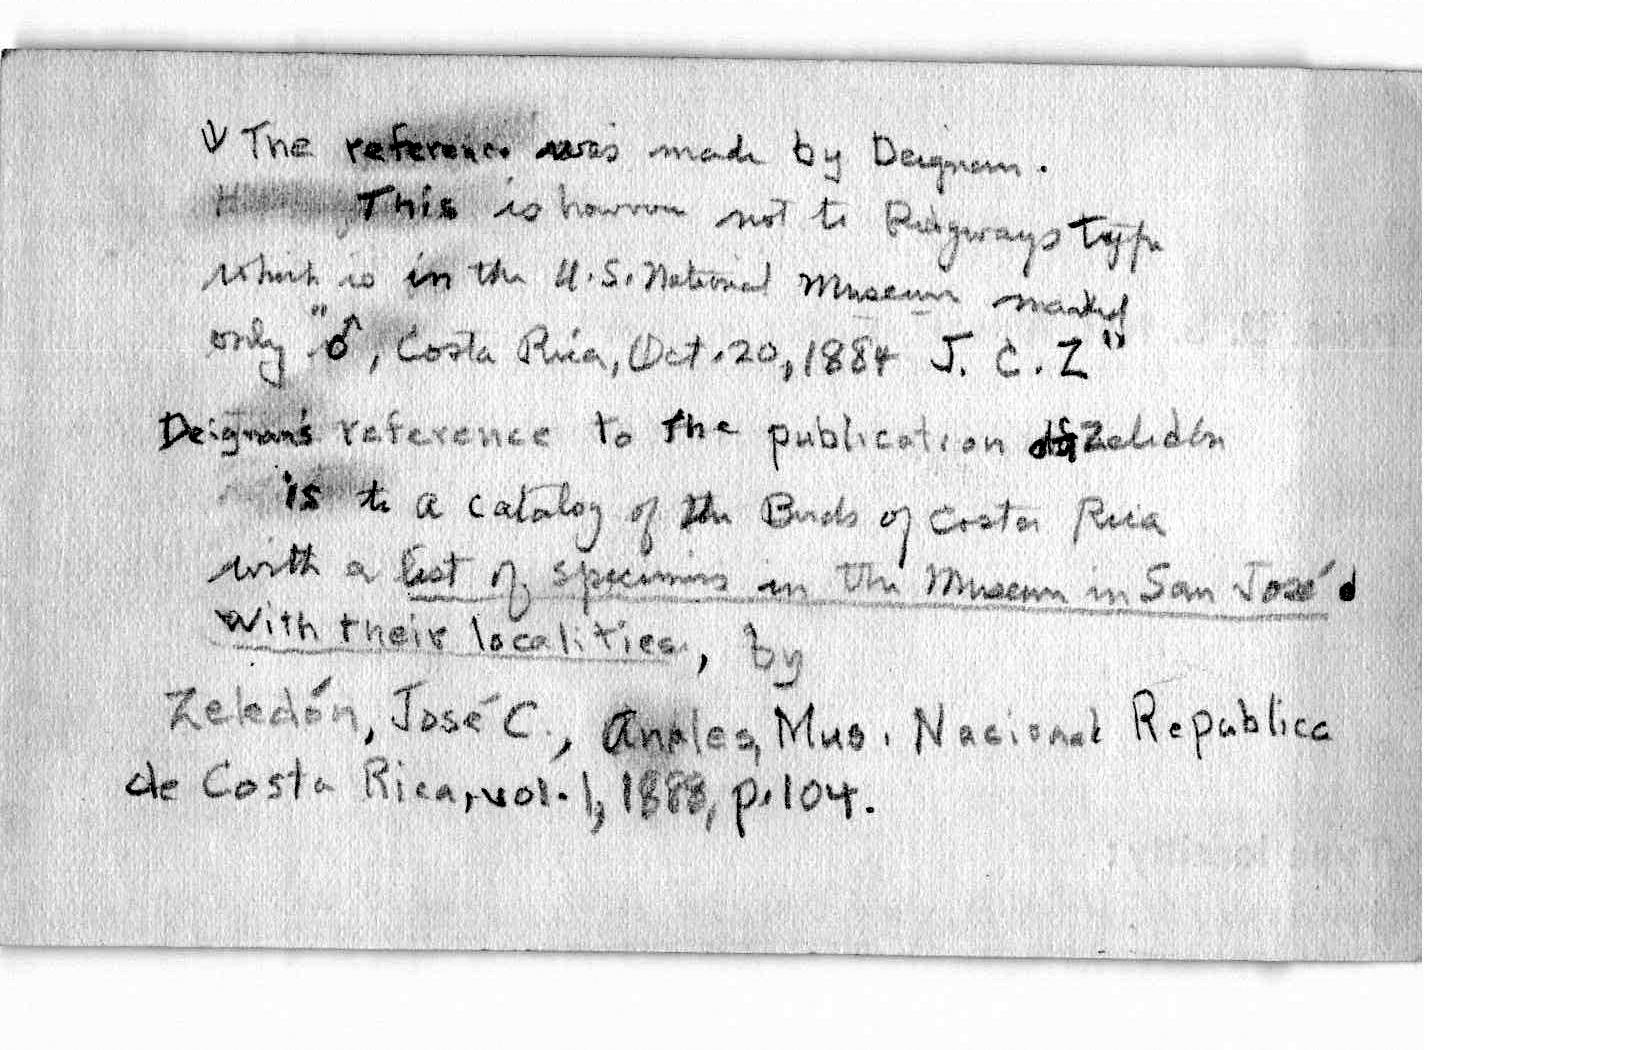 ↓ The reference was made by Deignan.
This is however not to Ridgways type
which is in the U.S. National Museum marked
only "♂, Costa Rica, Oct. 20, 1884 J. C. Z"
Deignan's reference to the publication of Zeledón
is to a catalog of the Birds of Costa Rica
with a list of specimens in the Museum in San José
with their localities, by
Zeledón, José C., Anales, Mus. Nacional Republica
de Costa Rica, vol. 1, 1888, p. 104.